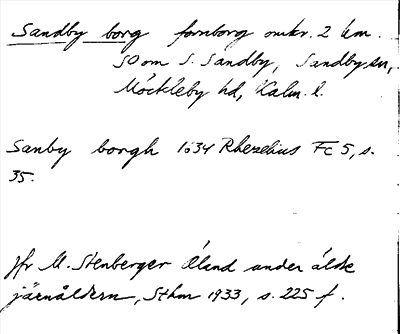 Sandby borg fornborg omkr. 2 km.
SO om S. Sandby, Sandby sn,
Möckleby hd, Kalm. l.
Sanby borgh 1634 Rhezelius Fc 5, s.
35.
Jfr M. Stenberger Öland under äldre
järnåldern, Sthm 1933, s. 225 f.